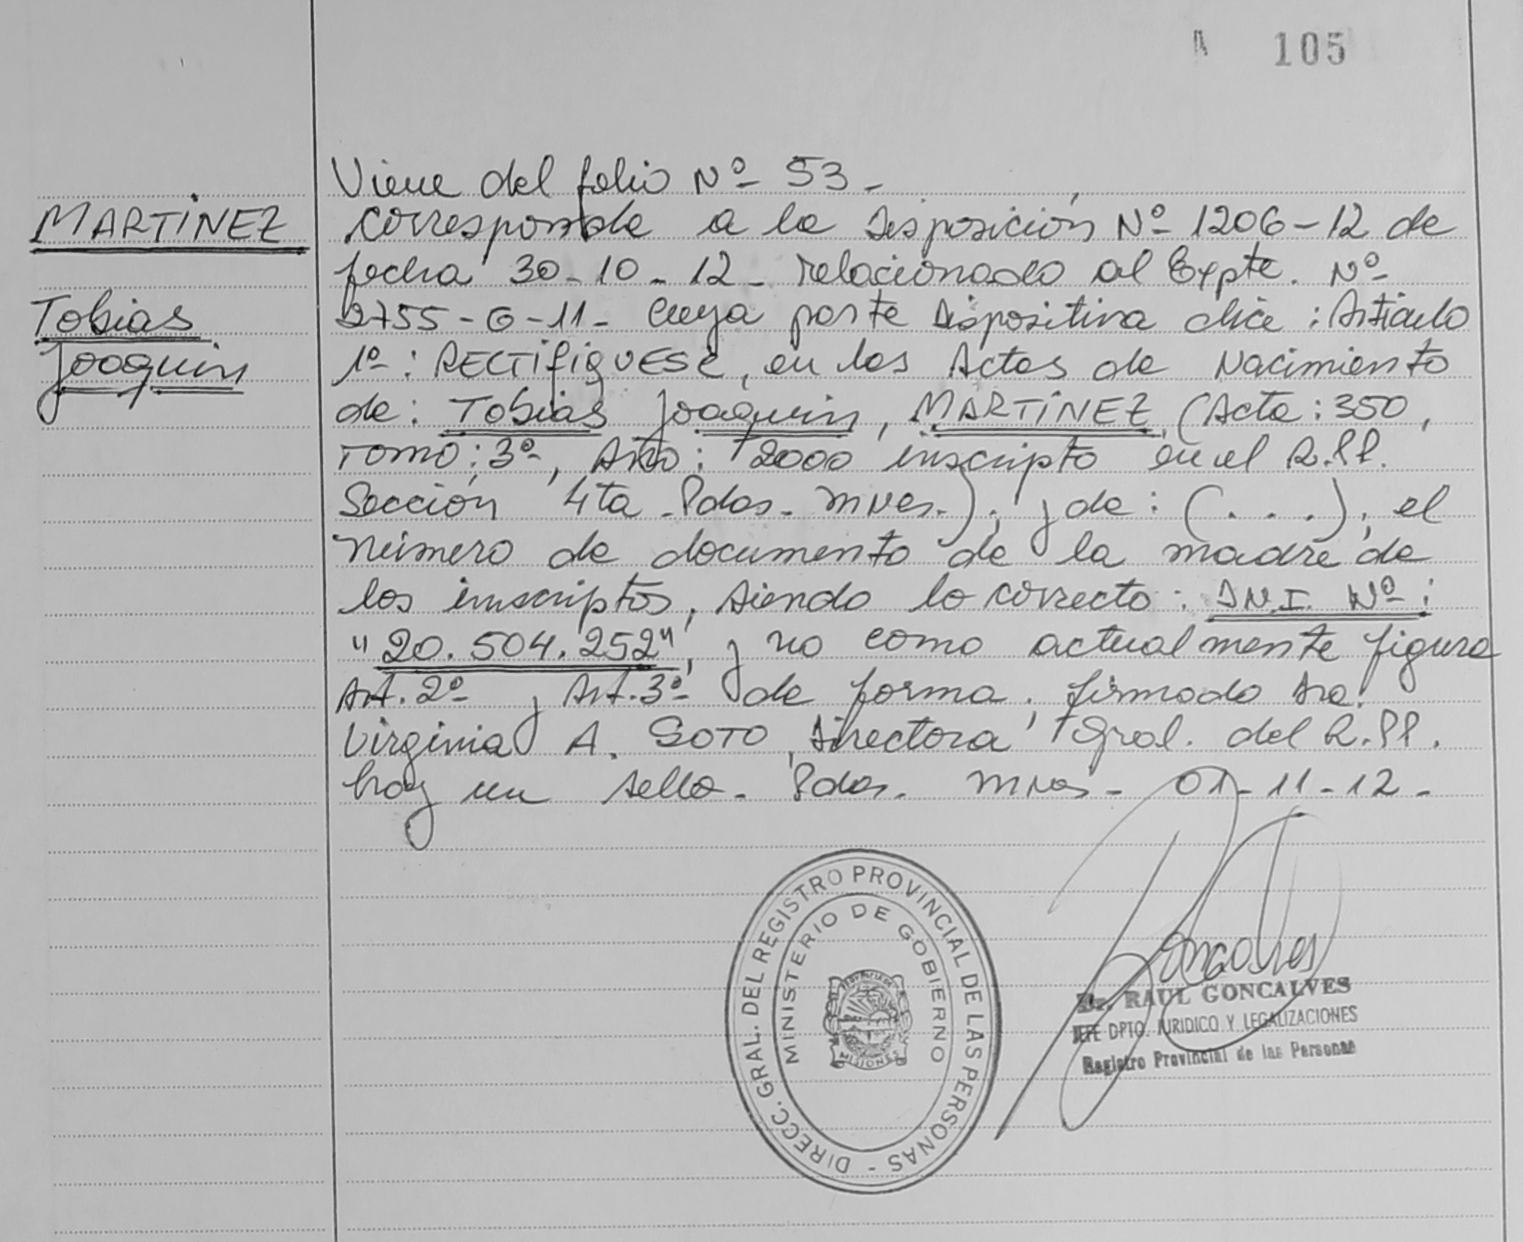 105
MARTÍNEZ
Tobias
Joaquin
Viene del folio Nº 53-
corresponde a la Disposición Nº 1206-12 de
fecha 30-10-12- relacionado al Expte. Nº
2755-G-11- Cuya parte Dispositiva dice: Artículo
1º: RECTIFIQUESE, en las Actas de Nacimiento
de: Tobias Joaquin, MARTÍNEZ (Acta: 350,
Tomo: 3º, Año: 2000 inscripto en el R.PP.
Sección 4ta. Pdas. Mnes.), y de: (...), el
número de documento de la madre de
los inscriptos, siendo lo correcto: D.N.I. Nº:
"20.504.252", y no como actualmente figura
Art. 2º y Art. 3º de forma. firmado Sra.
Virginia A. SOTO, Directora Gral. del R.PP.
hay un sello. Pdas. Mnes- 01-11-12-
DIRECC. GRAL. DEL REGISTRO PROVINCIAL DE LAS PERSONAS -
MINISTERIO DE GOBIERNO
MISIONES
Goncalves
Dr. RAUL GONCALVES
JEFE DPTO. JURIDICO Y LEGALIZACIONES
Registro Provincial de las Personas